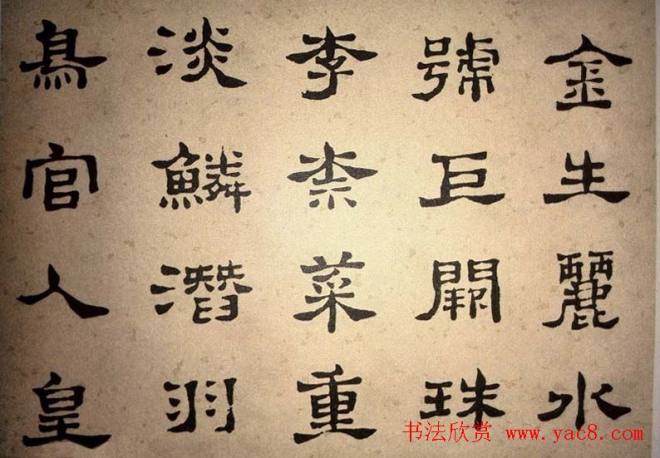 金生麗水
號巨闕珠
李柰菜重
淡鱗潛羽
鳥官人皇
书法欣赏 www.yac8.com